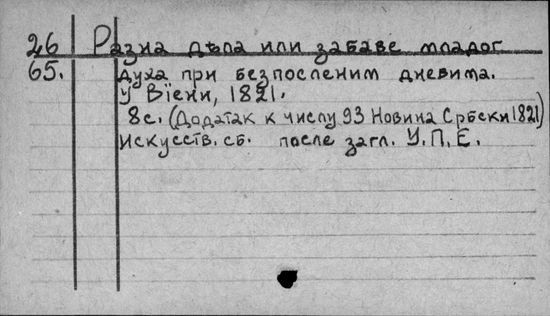 26 Разна дѣла или забаве младог
65. духа при безпосленим дневима.
У Вїени, 1821.
8с. (Додатак к числу 93 Новина Србски 1821)
Искусств. сб. после загл. У.П.Е.